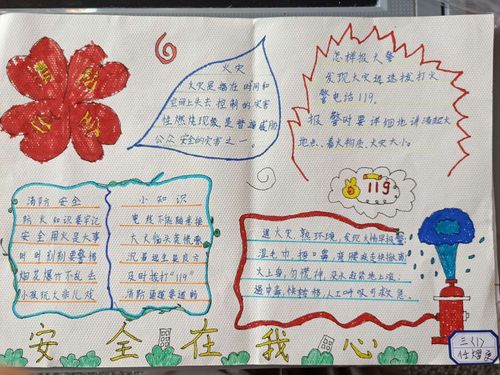 火灾
火灾是指在时间和
空间上失去控制的灾害
性燃烧现象是普遍威胁
公众安全的灾害之一。
怎样报火警
发现火灾迅速拨打火
警电话119。
报警时要详细地讲清起火
地点、着火物、火灾大小。
119
消防安全
防火知识要牢记
安全用火是大事
时时刻刻要警惕
烟花爆竹不乱丢
小孩玩火非儿戏
小知识
电线不能随意接
大火临头莫慌乱
沉着逃生最应当
及时拨打"119"
消防通道要通畅
遇火灾,熟环境,发现火情早报警
湿毛巾,捂口鼻,弯腰
火上身,勿慌神,
人工呼吸可救急。
安全在我心
三(1)